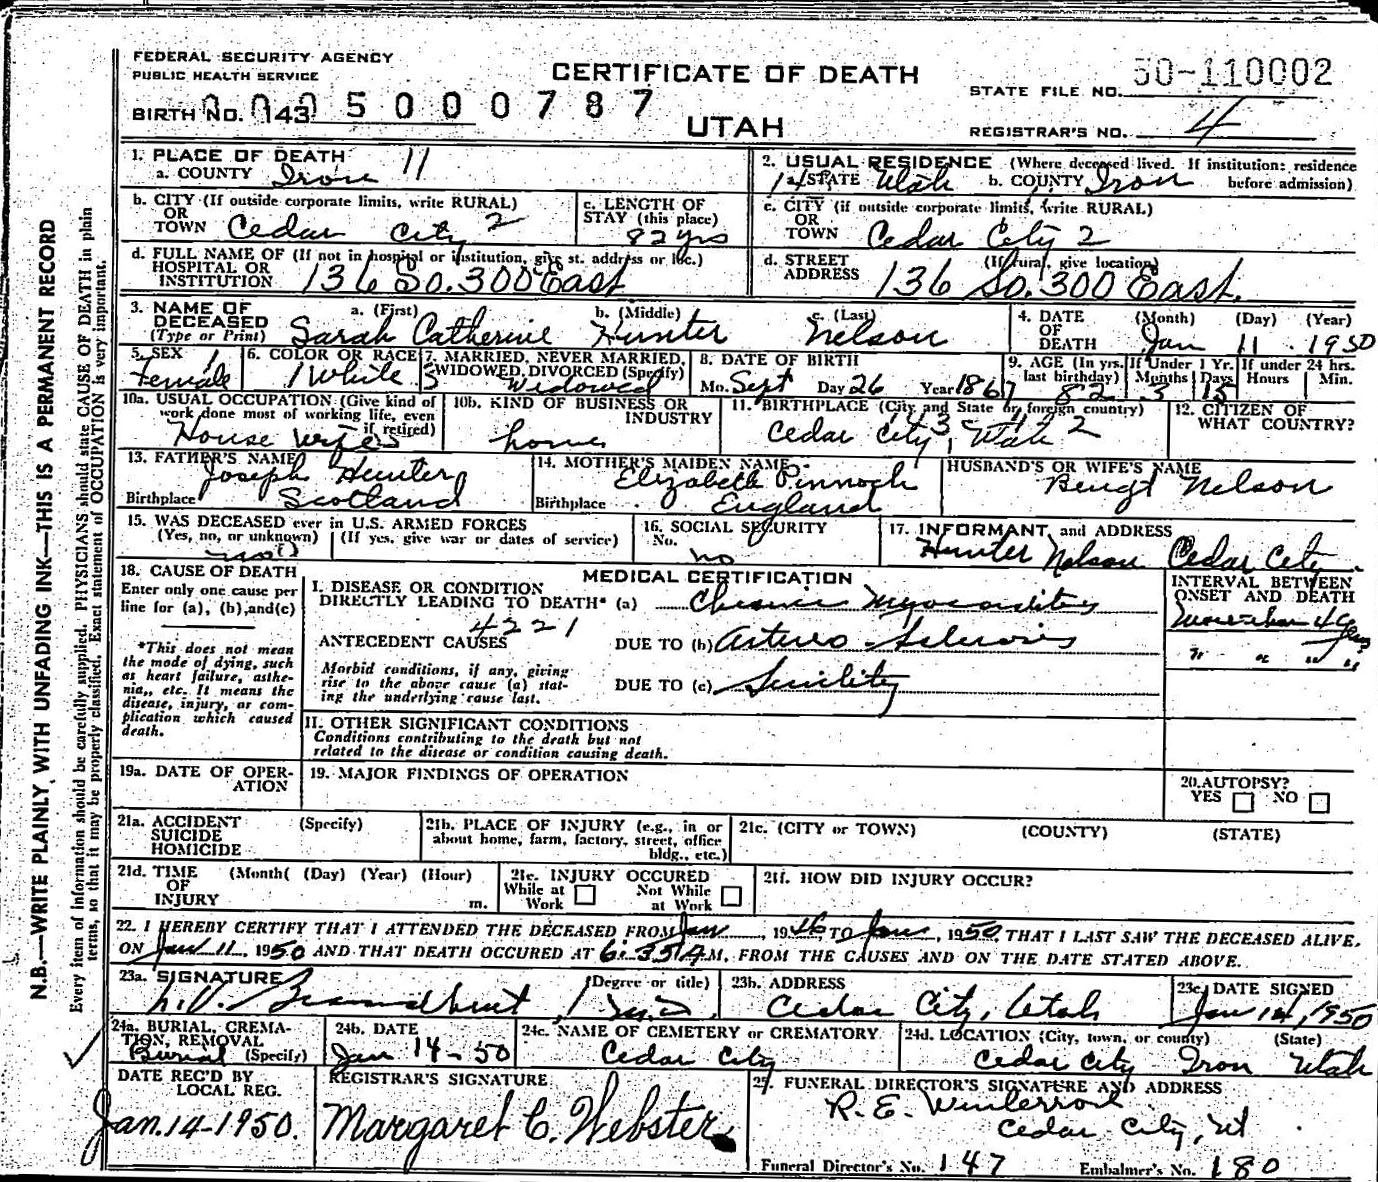 FEDERAL SECURITY AGENCY
PUBLIC HEALTH SERVICE
CERTIFICATE OF DEATH
50-110002
STATE FILE NO.
BIRTH NO. 143 0005000787
UTAH
REGISTRAR'S NO. 4
1. PLACE OF DEATH 11
a. COUNTY Iron
2. USUAL RESIDENCE (Where deceased lived. If institution: residence before admission)
a. STATE Utah b. COUNTY Iron
b. CITY (If outside corporate limits, write RURAL)
OR
TOWN Cedar City 2
c. LENGTH OF STAY (this place)
82 yrs
c. CITY (if outside corporate limits, write RURAL)
OR
TOWN Cedar City 2
d. FULL NAME OF (If not in hospital or institution, give st. address or loc.)
HOSPITAL OR
INSTITUTION 136 So. 300 East
d. STREET (If rural, give location)
ADDRESS 136 So. 300 East.
3. NAME OF DECEASED
(Type or Print)
a. (First) b. (Middle) c. (Last)
Sarah Catherine Hunter Nelson
4. DATE OF DEATH (Month) (Day) (Year)
Jan 11 1950
5. SEX 1
Female
6. COLOR OR RACE
1 White
7. MARRIED, NEVER MARRIED, WIDOWED, DIVORCED (Specify)
3 Widowed
8. DATE OF BIRTH
Mo. Sept Day 26 Year 1867
9. AGE (In yrs. last birthday) 82
If Under 1 Yr. Months 3 Days 15
If under 24 hrs. Hours Min.
10a. USUAL OCCUPATION (Give kind of work done most of working life, even if retired)
House wife
10b. KIND OF BUSINESS OR INDUSTRY
home
11. BIRTHPLACE (City and State or foreign country)
Cedar City, Utah
12. CITIZEN OF WHAT COUNTRY?
13. FATHER'S NAME
Joseph Hunter
Birthplace Scotland
14. MOTHER'S MAIDEN NAME
Elizabeth Pinnock
Birthplace England
HUSBAND'S OR WIFE'S NAME
Bengt Nelson
15. WAS DECEASED ever in U.S. ARMED FORCES
(Yes, no, or unknown) (If yes, give war or dates of service)
no
16. SOCIAL SECURITY
No.
no
17. INFORMANT and ADDRESS
Hunter Nelson Cedar City
18. CAUSE OF DEATH
Enter only one cause per line for (a), (b), and (c)
*This does not mean the mode of dying, such as heart failure, asthenia,, etc. It means the disease, injury, or complication which caused death.
MEDICAL CERTIFICATION
I. DISEASE OR CONDITION
DIRECTLY LEADING TO DEATH* (a) Chronic Myocarditis
4221
ANTECEDENT CAUSES DUE TO (b) Arterio Sclerosis
Morbid conditions, if any, giving rise to the above cause (a) stating the underlying cause last.
DUE TO (c) Senility
INTERVAL BETWEEN ONSET AND DEATH
More than 4 Years
" " " "
II. OTHER SIGNIFICANT CONDITIONS
Conditions contributing to the death but not related to the disease or condition causing death.
19a. DATE OF OPERATION
19. MAJOR FINDINGS OF OPERATION
20. AUTOPSY?
YES NO
21a. ACCIDENT (Specify)
SUICIDE
HOMICIDE
21b. PLACE OF INJURY (e.g., in or about home, farm, factory, street, office bldg., etc.)
21c. (CITY or TOWN) (COUNTY) (STATE)
21d. TIME (Month( (Day) (Year) (Hour)
OF
INJURY m.
21e. INJURY OCCURED
While at Work Not While at Work
21f. HOW DID INJURY OCCUR?
22. I HEREBY CERTIFY THAT I ATTENDED THE DECEASED FROM Jan, 1946, TO Jan, 1950, THAT I LAST SAW THE DECEASED ALIVE.
ON Jan 11, 1950 AND THAT DEATH OCCURED AT 6:35 A M. FROM THE CAUSES AND ON THE DATE STATED ABOVE.
23a. SIGNATURE (Degree or title)
M.D.
23b. ADDRESS
Cedar City, Utah
23c. DATE SIGNED
Jan 14, 1950
24a. BURIAL, CREMATION, REMOVAL
Burial (Specify)
24b. DATE
Jan 14-50
24c. NAME OF CEMETERY or CREMATORY
Cedar City
24d. LOCATION (City, town, or county) (State)
Cedar City Iron Utah
DATE REC'D BY LOCAL REG.
Jan. 14-1950.
REGISTRAR'S SIGNATURE
Margaret C. Webster
25. FUNERAL DIRECTOR'S SIGNATURE AND ADDRESS
R. E.
Cedar City, Ut
Funeral Director's No. 147 Embalmer's No. 180
N.B.—WRITE PLAINLY, WITH UNFADING INK—THIS IS A PERMANENT RECORD
Every item of information should be carefully supplied. PHYSICIANS should state CAUSE OF DEATH in plain
terms, so that it may be properly classified. Exact statement of OCCUPATION is very important.